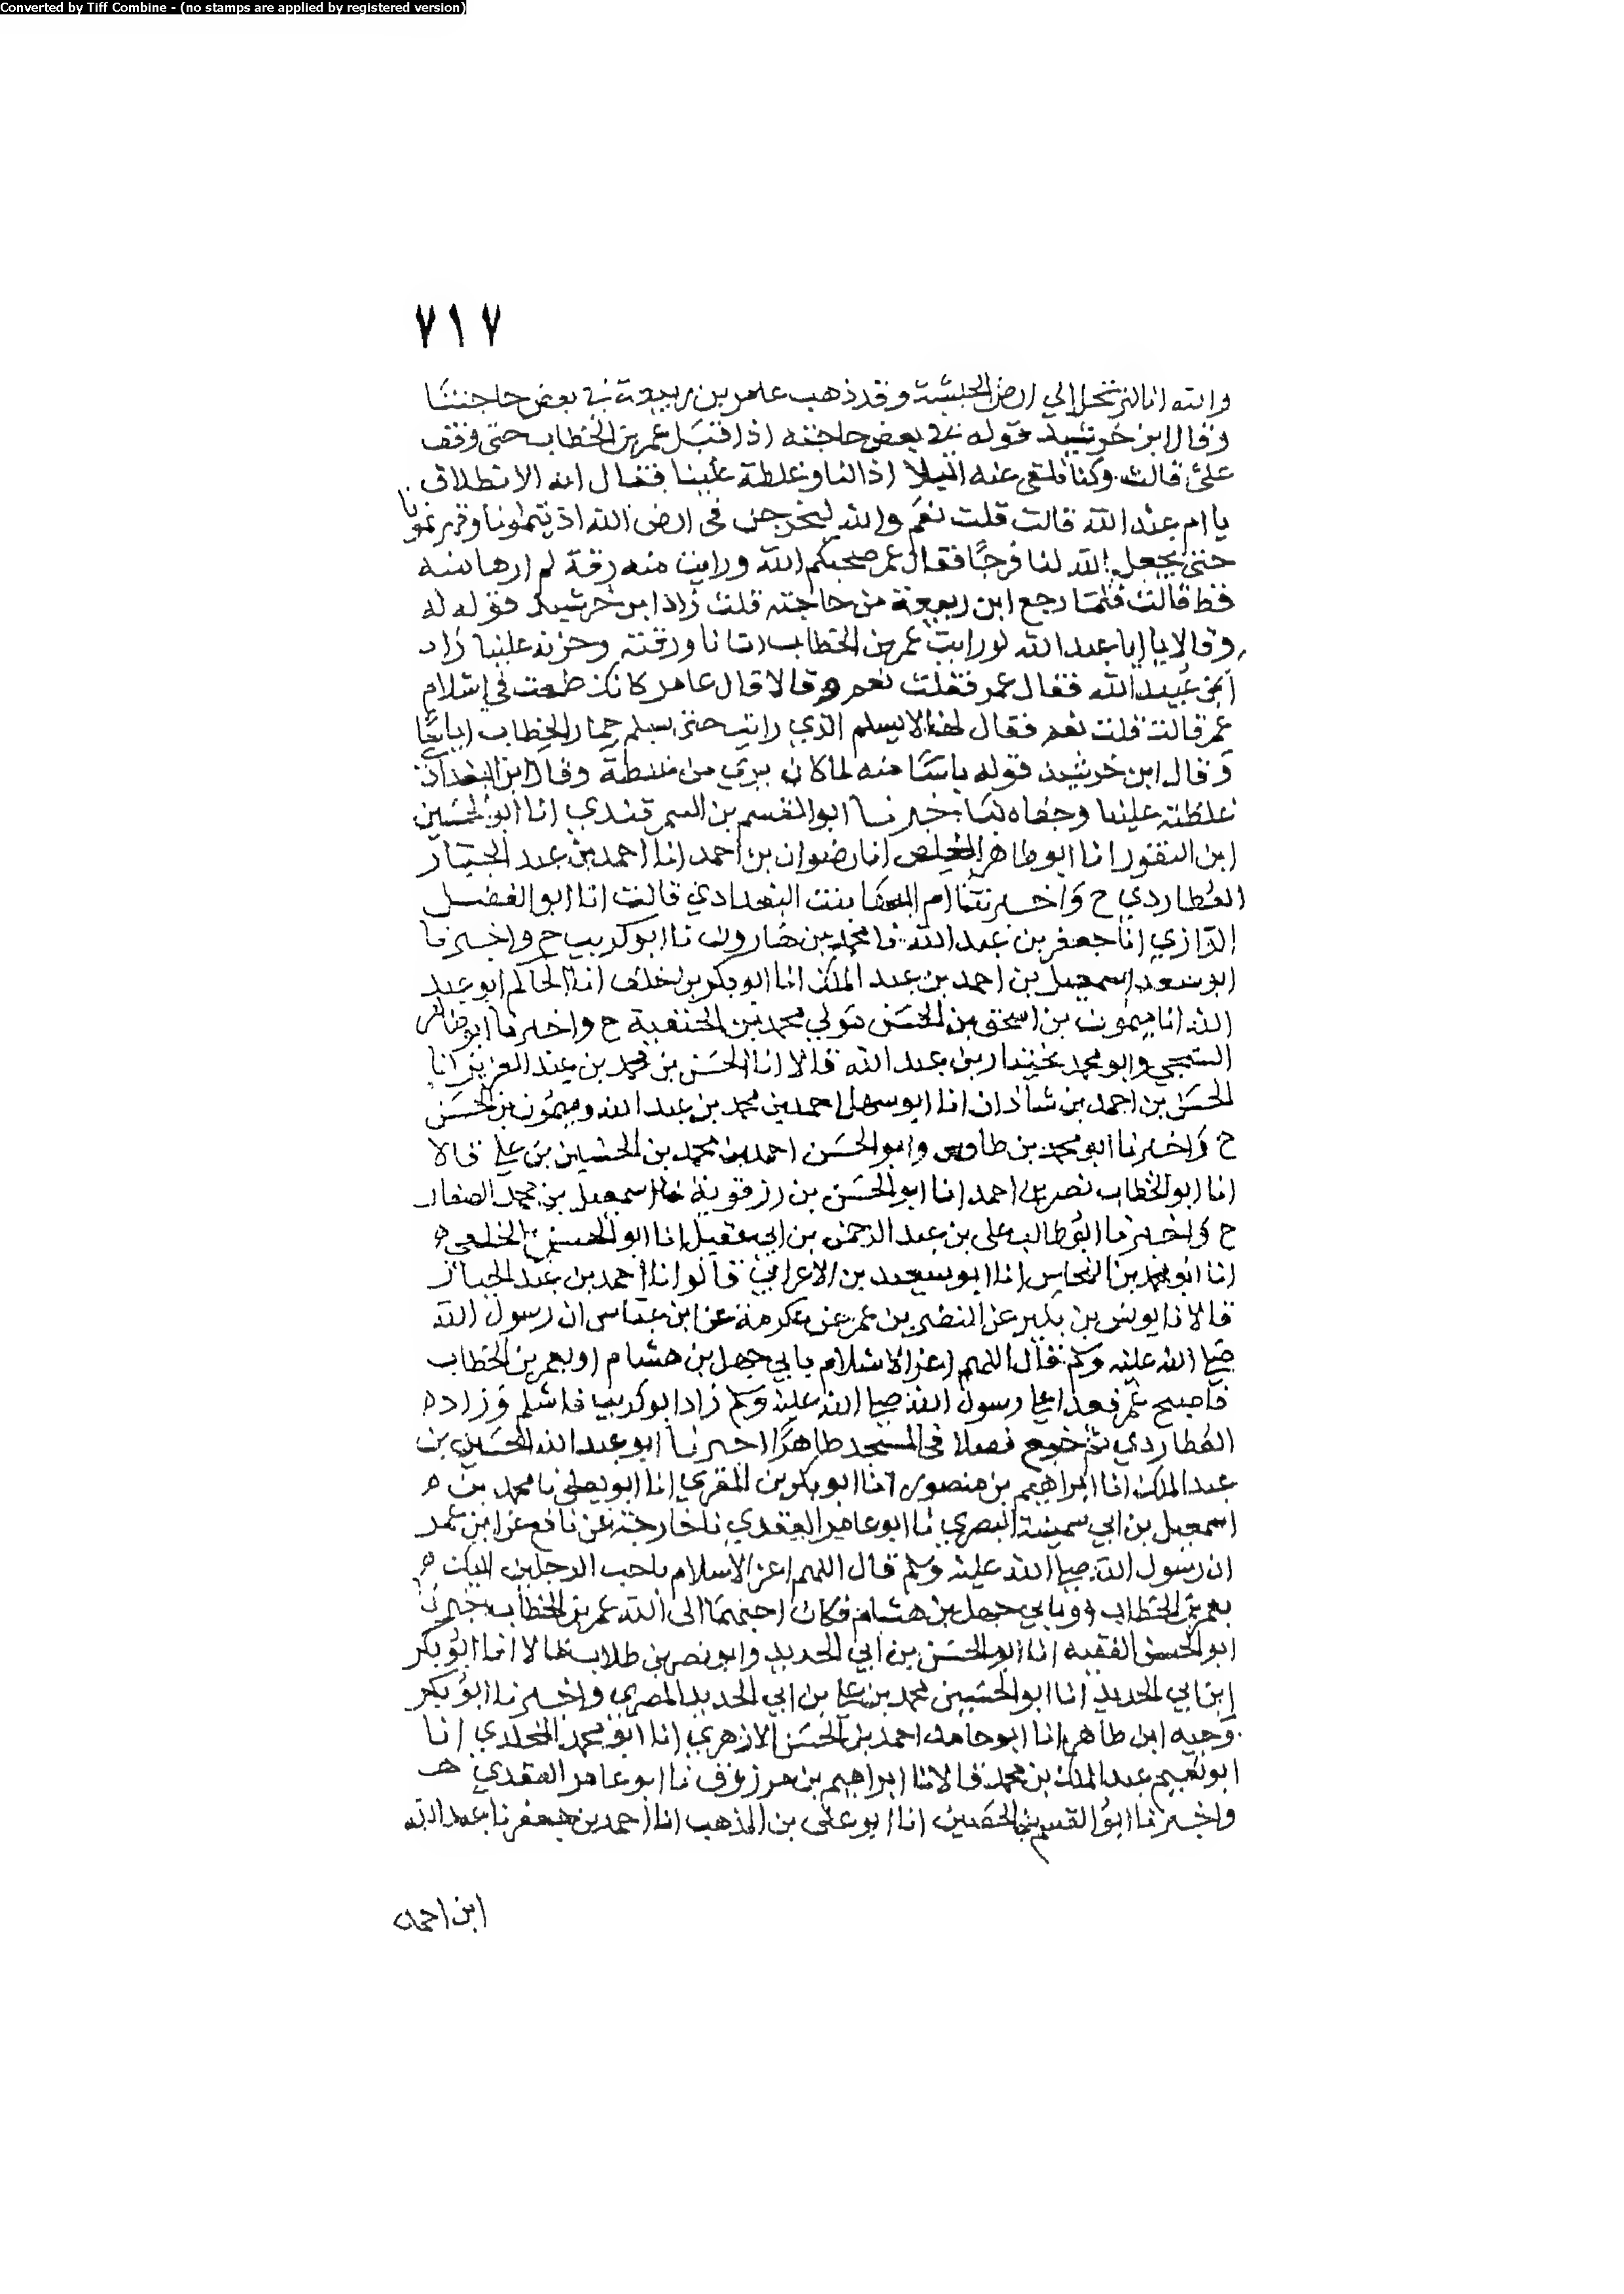 Converted by Tiff Combine - (no stamps are applied by registered version)
٧١٧
والله انا لنرتحل الي ارض الحبشة وقد ذهب عامر بن ربيعة في بعض حاجتنا
وقال ابن خرشيد قوله في بعض حاجته اذ اقبل عمر بن الخطاب حتى وقف
على قالت وكنا نلقى عنه البلا اذا لنا وغلظة علينا فقال انه الانطلاق
يا ام عبد الله قالت قلت نعم والله لنخرجن في ارض الله اذيتمونا وقهرتمونا
حتى يجعل الله لنا فرجًا فقال عمر صحبكم الله ورايت منه رقة لم ارها منه
قط قالت فلما رجع ابن ربيعة من حاجته قلت زاد ابن خرشيد قوله له
وقالا يا ابا عبد الله لو رايت عمر بن الخطاب انا نا ورقته وحزنه علينا زاد
ابن عبيد الله فقال عمر فقلت نعم وقالا قال عامر كانك طمعت في اسلام
عمر قالت قلت نعم فقال لهذا لا يسلم الذي رايت حتى يسلم حمار الخطاب اياسًا
وقال ابن خرشيد قوله ياسًا منه لما كان يري من غلظة وقال ابن البغدادي
غلظته علينا وجفاه لنا اخبرنا ابو القسم بن السمرقندي انا ابو الحسين
ابن النقور انا ابو طاهر المخلص انا رضوان بن احمد انا احمد بن عبد الجبار
العطاردي ح واخبرتنا ام البها بنت البغدادي قالت انا ابو الفضل
الرازي انا جعفر بن عبد الله نا محمد بن هارون نا ابو كريب ح واخبرنا
ابو سعد اسمعيل بن احمد بن عبد الملك انا ابو بكر بن خلف انا الحاكم ابو عبد
الله انا ميمون بن اسحق بن الحسن مولي محمد بن الحنفية ح واخبرنا ابو طاهر
السنجي وابو محمد بختيار بن عبد الله قالا انا الحسن بن محمد بن عبد العزيز انا
الحسن بن احمد بن شاذان انا ابو سهل احمد بن محمد بن عبد الله وميمون بن الحسن
ح واخبرنا ابو محمد بن طاوس وابو الحسن احمد بن محمد بن الحسين بن علي قالا
انا ابو الخطاب نصر بن احمد انا ابو الحسن بن رزقوية نا اسمعيل بن محمد الصفار
ح واخبرنا ابو طالب على بن عبد الرحمن بن ابي عقيل انا ابو الحسن الخلعي ه
انا ابو محمد بن النحاس انا ابو سعيد بن الاعرابي قالوا انا احمد بن عبد الجبار
قالا نا يونس بن بكير عن النضر بن عمر عن عكرمة عن ابن عباس ان رسول الله
صلى الله عليه وسلم قال اللهم اعز الاسلام بابي جهل بن هشام او بعمر بن الخطاب
فاصبح عمر فغدا على رسول الله صلى الله عليه وسلم زاد ابو كريب فاسلم وزاد ه
العطاردي ثم خرج فصلا في المسجد ظاهرًا اخبرنا ابو عبد الله الحسين بن
عبد الملك انا ابراهيم بن منصور انا ابو بكر بن المقري انا ابو يعلى نا محمد بن ه
اسمعيل بن ابي سمينة البصري نا ابو عامر العقدي نا خارجة عن نافع عن ابن عمر
ان رسول الله صلى الله عليه وسلم قال اللهم اعز الاسلام باحب الرجلين اليك ه
بعمر بن الخطاب او بابي جهل بن هشام فكان احبهما الى الله عمر بن الخطاب اخبرنا
ابو الحسن الفقيه انا ابو الحسن بن ابي الحديد وابو نصر بن طلاب قالا انا ابو بكر
ابن ابي الحديد انا ابو الحسين محمد بن علي بن ابي الحديد المصري واخبرنا ابو بكر
وجيه ابن طاهر انا ابو حامد احمد بن الحسن الازهري انا ابو محمد المخلدي انا
ابو نعيم عبد الملك بن محمد قالا نا ابراهيم بن مرزوق نا ابو عامر العقدي ه
واخبرنا ابو القسم بن الحصين انا ابو على بن المذهب انا احمد بن جعفر نا عبد الله
ابن احمد